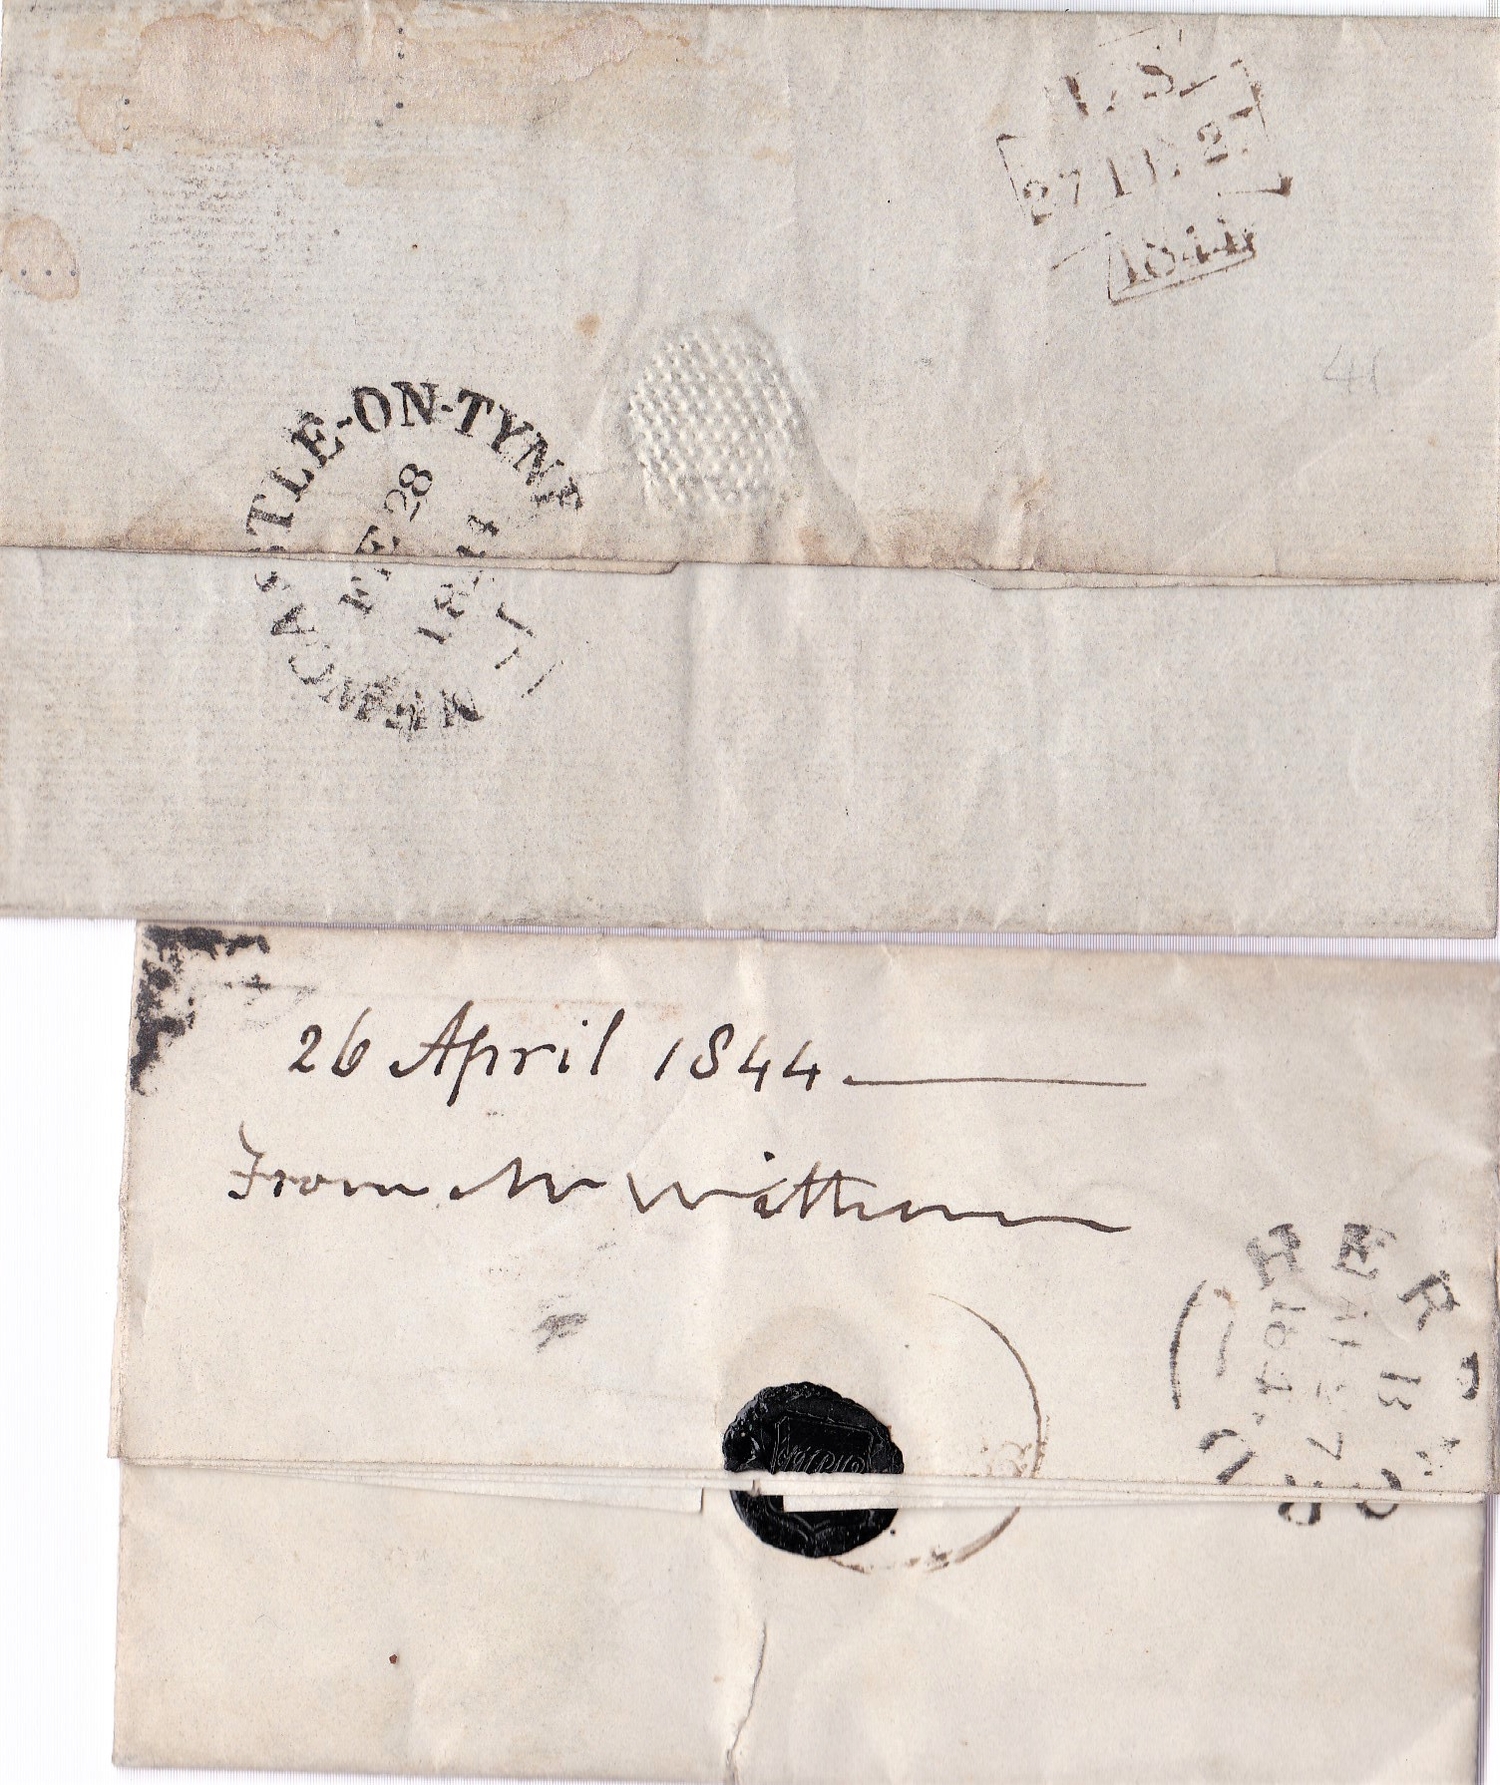 27 FE 27
1844
41
NEWCASTLE-ON-TYNE
FE 28
1844
26 April 1844
From Mr
HERTFORD
B
7
184